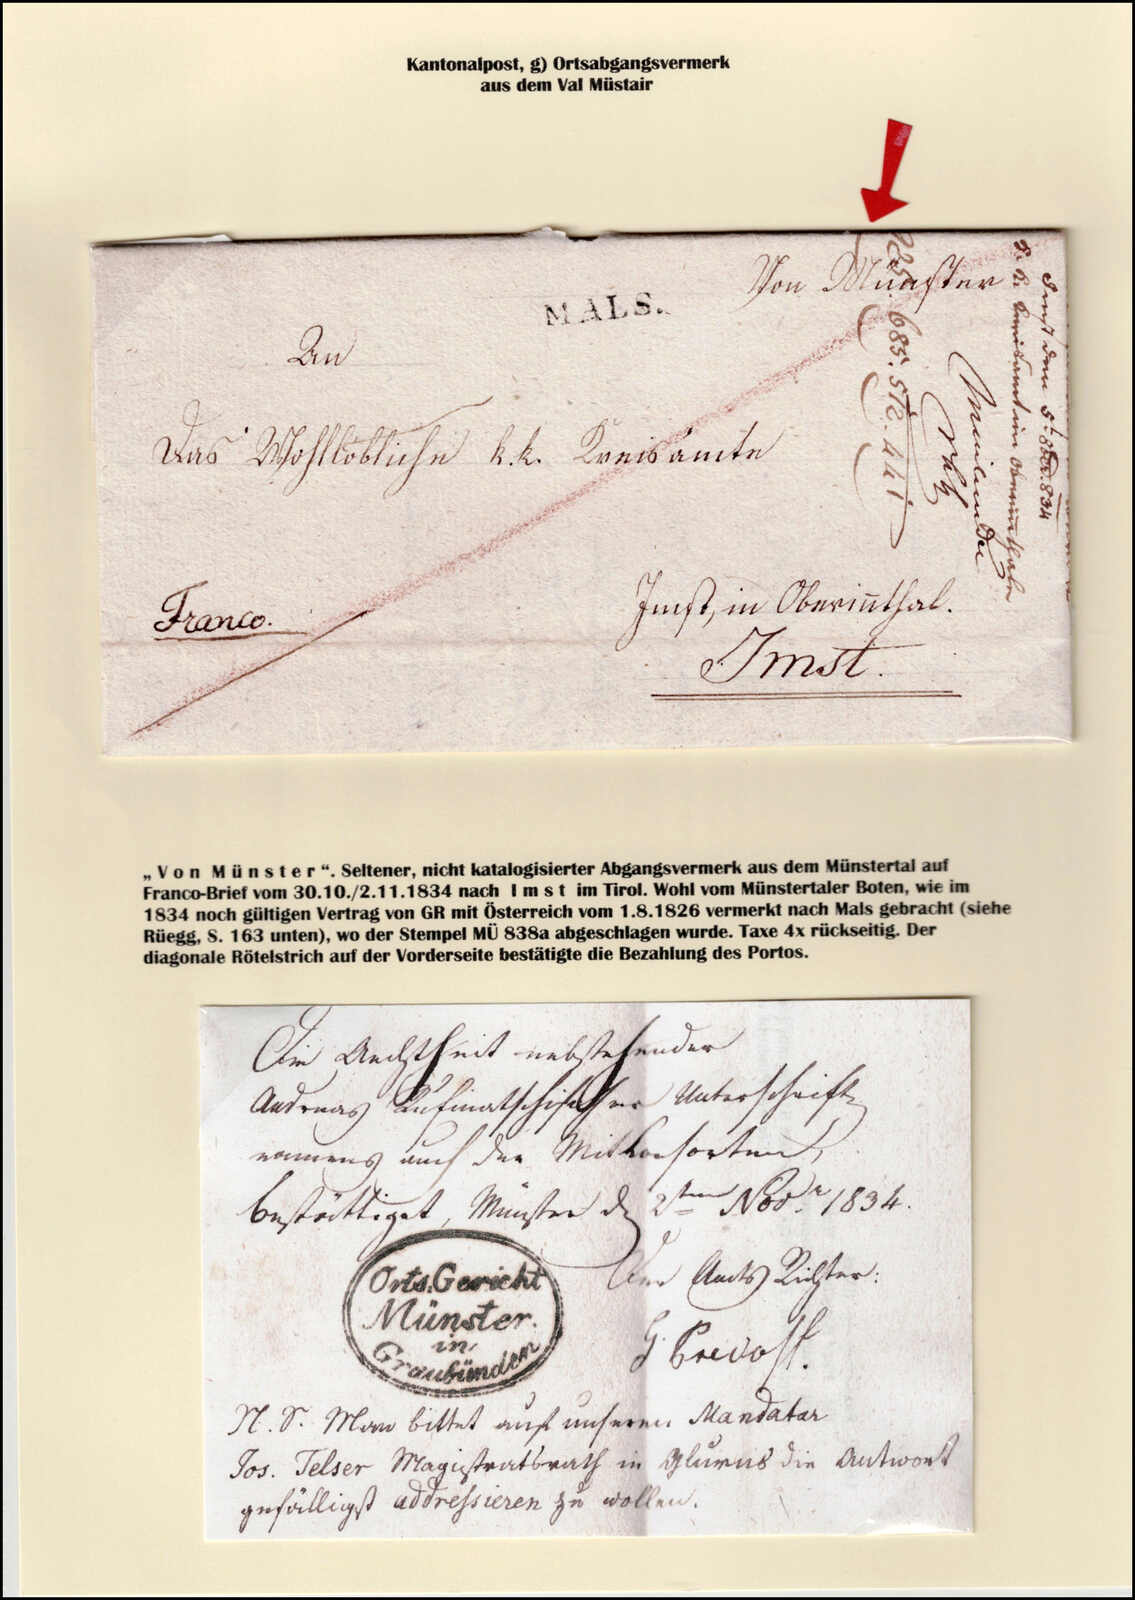 Kantonalpost, g) Ortsabgangsvermerk
aus dem Val Müstair
Von Münster
MALS.
An
Das Wohllöbliche k. k. Kreisamte
Franco.
Imst, in Oberinnthal.
Imst.
685. 512. 441
k. k. Kreisamt im Oberinnthale
Imst dem 5t. 834
„Von Münster“. Seltener, nicht katalogisierter Abgangsvermerk aus dem Münstertal auf
Franco-Brief vom 30.10./2.11.1834 nach Imst im Tirol. Wohl vom Münstertaler Boten, wie im
1834 noch gültigen Vertrag von GR mit Österreich vom 1.8.1826 vermerkt nach Mals gebracht (siehe
Rüegg, S. 163 unten), wo der Stempel MÜ 838a abgeschlagen wurde. Taxe 4x rückseitig. Der
diagonale Rötelstrich auf der Vorderseite bestätigte die Bezahlung des Portos.
Die Aechtheit nebstehender
Andreas Unterschrift
namens auch der Mitkonsorten,
bestättiget, Münster d 2ten Nov.r 1834.
Der Amts Richter:
G. Prevost.
Orts.Gericht
Münster.
in
Graubünden
N. S. Man bittet auf unseren Mandatar
Jos. Telser Magistratsrath in Glurns die Antwort
gefälligst addressieren zu wollen.